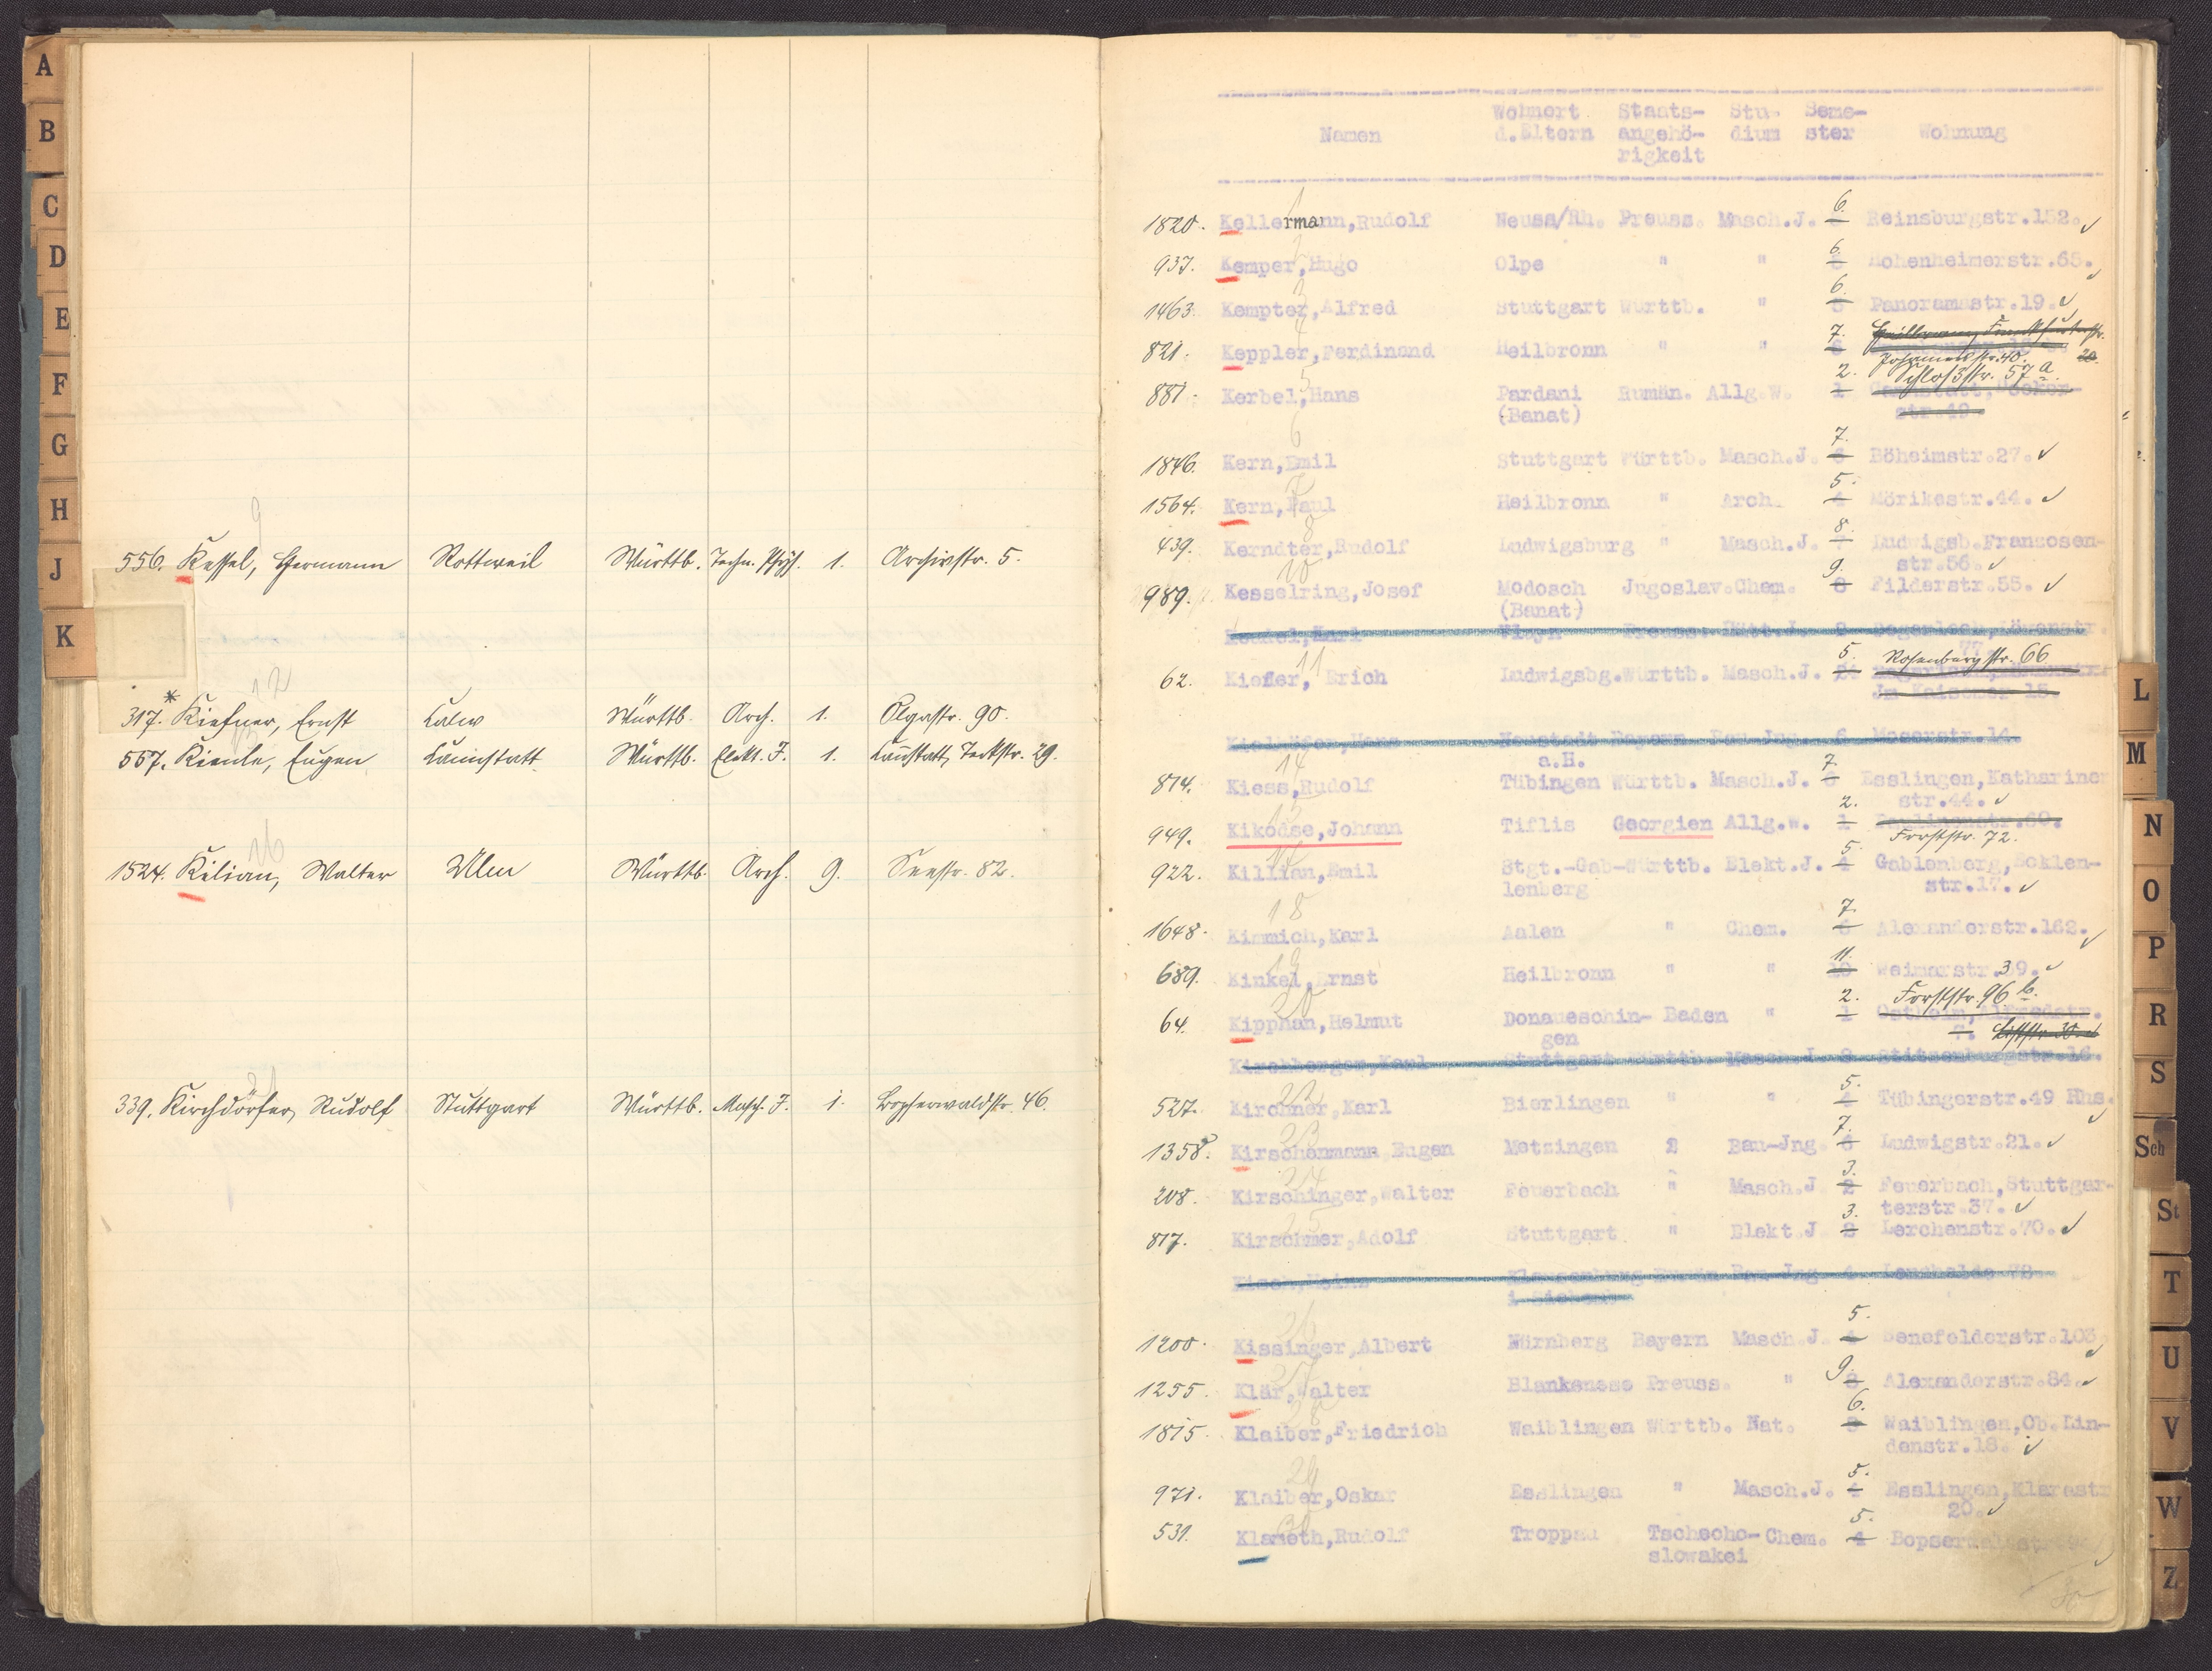 A
B
C
D
E
F
G
H
J
K
9
556. Kessel, Hermann Rottweil Württb. Techn. Phys. 1. Archivstr. 5.
12
* 317. Kiefner, Ernst Calw Württb. Arch. 1. Olgastr. 90.
567. Kienle, Eugen Cannstatt Württb. Elekt. J. 1. Cannstatt, Teckstr. 29.
16
1524. Kilian, Walter Ulm Württb. Arch. 9. Seestr. 82.
21
339. Kirchdörfer, Rudolf Stuttgart Württb. Masch. J. 1. Bopserwaldstr. 46.
Namen Wohnort d.Eltern Staats-angehö-rigkeit Stu-dium Seme-ster Wohnung
1
1820. Kellermann,Rudolf Neuss/Rh. Preuss. Masch.J. 6. Reinsburgstr.152.
2
937. Kemper,Hugo Olpe " " 6. Hohenheimerstr.65.
3
1463. Kempter,Alfred Stuttgart Württb. " 6. Panoramastr.19.
4
821. Keppler,Ferdinand Heilbronn " " 7.
Johannesstr. 40.
5
881. Kerbel,Hans Pardani Rumän. Allg.W. 1 2. Schloßstr. 57 a. Cannstatt,
(Banat) str.49
6
1846. Kern,Emil Stuttgart Württb. Masch.J. 6 7. Böheimstr.27.
7
1564. Kern,Paul Heilbronn " Arch. 4 5. Mörikestr.44.
8
439. Kerndter,Rudolf Ludwigsburg " Masch.J. 7 8. Ludwigsb.Franzosen-
str.56.
10
989. Kesselring,Josef Modosch Jugoslav.Chem. 8 9. Filderstr.55.
(Banat)
11
62. Kiefer, Erich Ludwigsbg.Württb. Masch.J. 5. Rosenbergstr. 66
Jm Kaisemer 15
Kielhöfer,Hans Neustadt Bayern Bau-Jng. 6 Moserstr.14.
a.H.
14
814. Kiess,Rudolf Tübingen Württb. Masch.J. 6 7. Esslingen,Katharinen
str.44.
15
949. Kikodse,Johann Tiflis Georgien Allg.W. 1 2.
Forststr. 72.
17
922. Killian,Emil Stgt.-Gab-Württb. Elekt.J. 4 5. Gablenberg,Bcklen-
lenberg str.17.
18
1648. Kimmich,Karl Aalen " Chem. 6 7. Alexanderstr.162.
19
689. Kinkel,Ernst Heilbronn " " 10 11. Weimarstr.39.
20
64. Kipphan,Helmut Donaueschin- Baden " 1 2. Forststr. 96 b.
gen
Kirchberger,Karl Stuttgart Württb. Masch.J.
22
527. Kirchner,Karl Bierlingen " " 4 5. Tübingerstr.49 Hhs.
23
1358. Kirschenmann Eugen Metzingen " Bau-Jng. 6 7. Ludwigstr.21.
24
208. Kirschinger,Walter Feuerbach " Masch.J 2 3. Feuerbach,Stuttgar-
terstr.37.
25
817. Kirschmer,Adolf Stuttgart " Elekt.J 2 3. Lerchenstr.70.
26
1200. Kissinger,Albert Nürnberg Bayern Masch.J. 4 5. Senefelderstr.103
27
1255. Klär,Walter Blankenese Preuss. " 8 9. Alexanderstr.84.
28
1815. Klaiber,Friedrich Waiblingen Württb. Nat. 6. Waiblingen,Ob.Lin-
denstr.18.
29
971. Klaiber,Oskar Esslingen " Masch.J. 4 5. Esslingen,Klarastr
20.
30
531. Klameth,Rudolf Troppau Tschecho- Chem. 4 5.
slowakei
L
M
N
O
P
R
S
Sch
St
T
U
V
W
Z